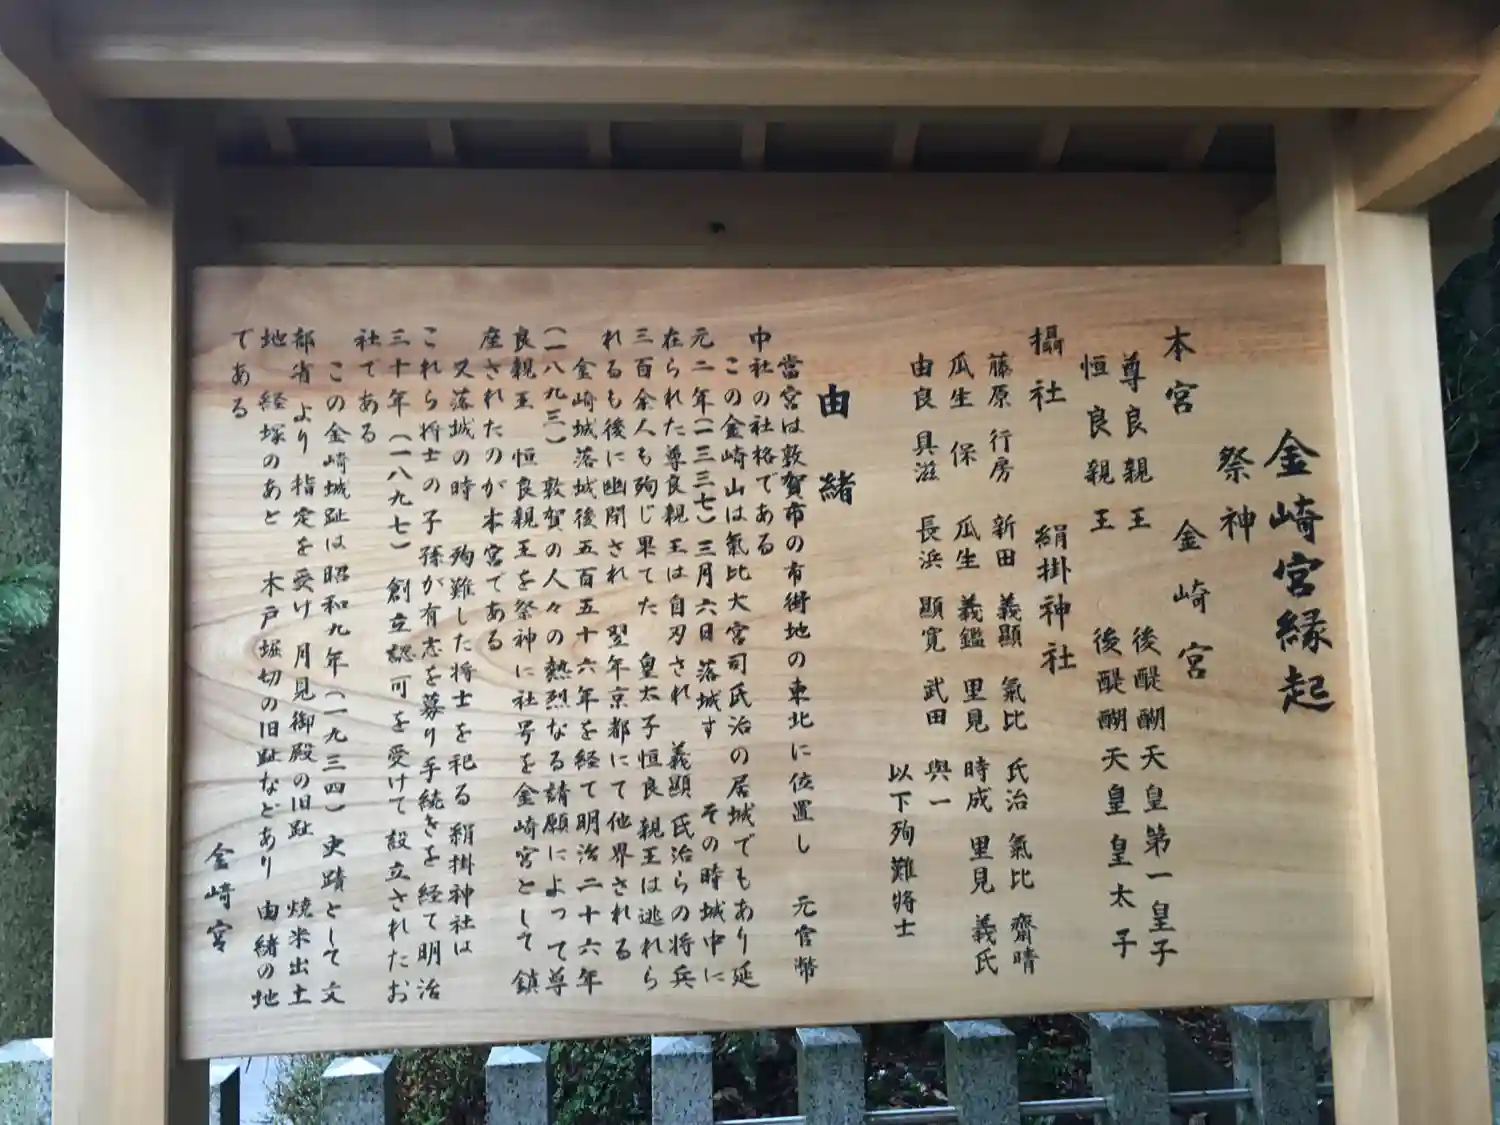 金崎宮縁起
祭神
本宮 金崎宮
尊良親王 後醍醐天皇第一皇子
恒良親王 後醍醐天皇皇太子
攝社 絹掛神社
藤原行房 新田義顯 氣比氏治 氣比齋晴
瓜生保 瓜生義鑑 里見時成 里見義氏
由良具滋 長浜顯寛 武田與一
以下殉難将士
由緒
當宮は敦賀市の市街地の東北に位置し 元官幣
中社の社格である
この金崎山は氣比大宮司氏治の居城でもあり延
元二年(一三三七)三月六日落城す その時城中に
在られた尊良親王は自刃され 義顯 氏治らの将兵
三百余人も殉じ果てた 皇太子恒良親王は逃れら
れるも後に幽閉され 翌年京都にて他界される
金崎城落城後五百五十六年を経て明治二十六年
(一八九三)敦賀の人々の熱烈なる請願によって尊
良親王 恒良親王を祭神に社号を金崎宮として鎮
座されたのが本宮である
又落城の時 殉難した将士を祀る絹掛神社は
これら将士の子孫が有志を募り手続きを経て明治
三十年(一八九七)創立認可を受けて設立されたお
社である
この金崎城趾は昭和九年(一九三四)史蹟として文
部省より指定を受け 月見御殿の旧趾 焼米出土
地 経塚のあと 木戸堀切の旧趾などあり 由緒の地
である
金崎宮